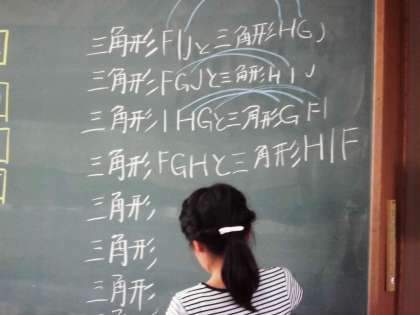 三角形FIJと三角形HGJ
三角形FGJと三角形HIJ
三角形IHGと三角形GFI
三角形FGHと三角形HIF
三角形
三角形
三角形
三角形